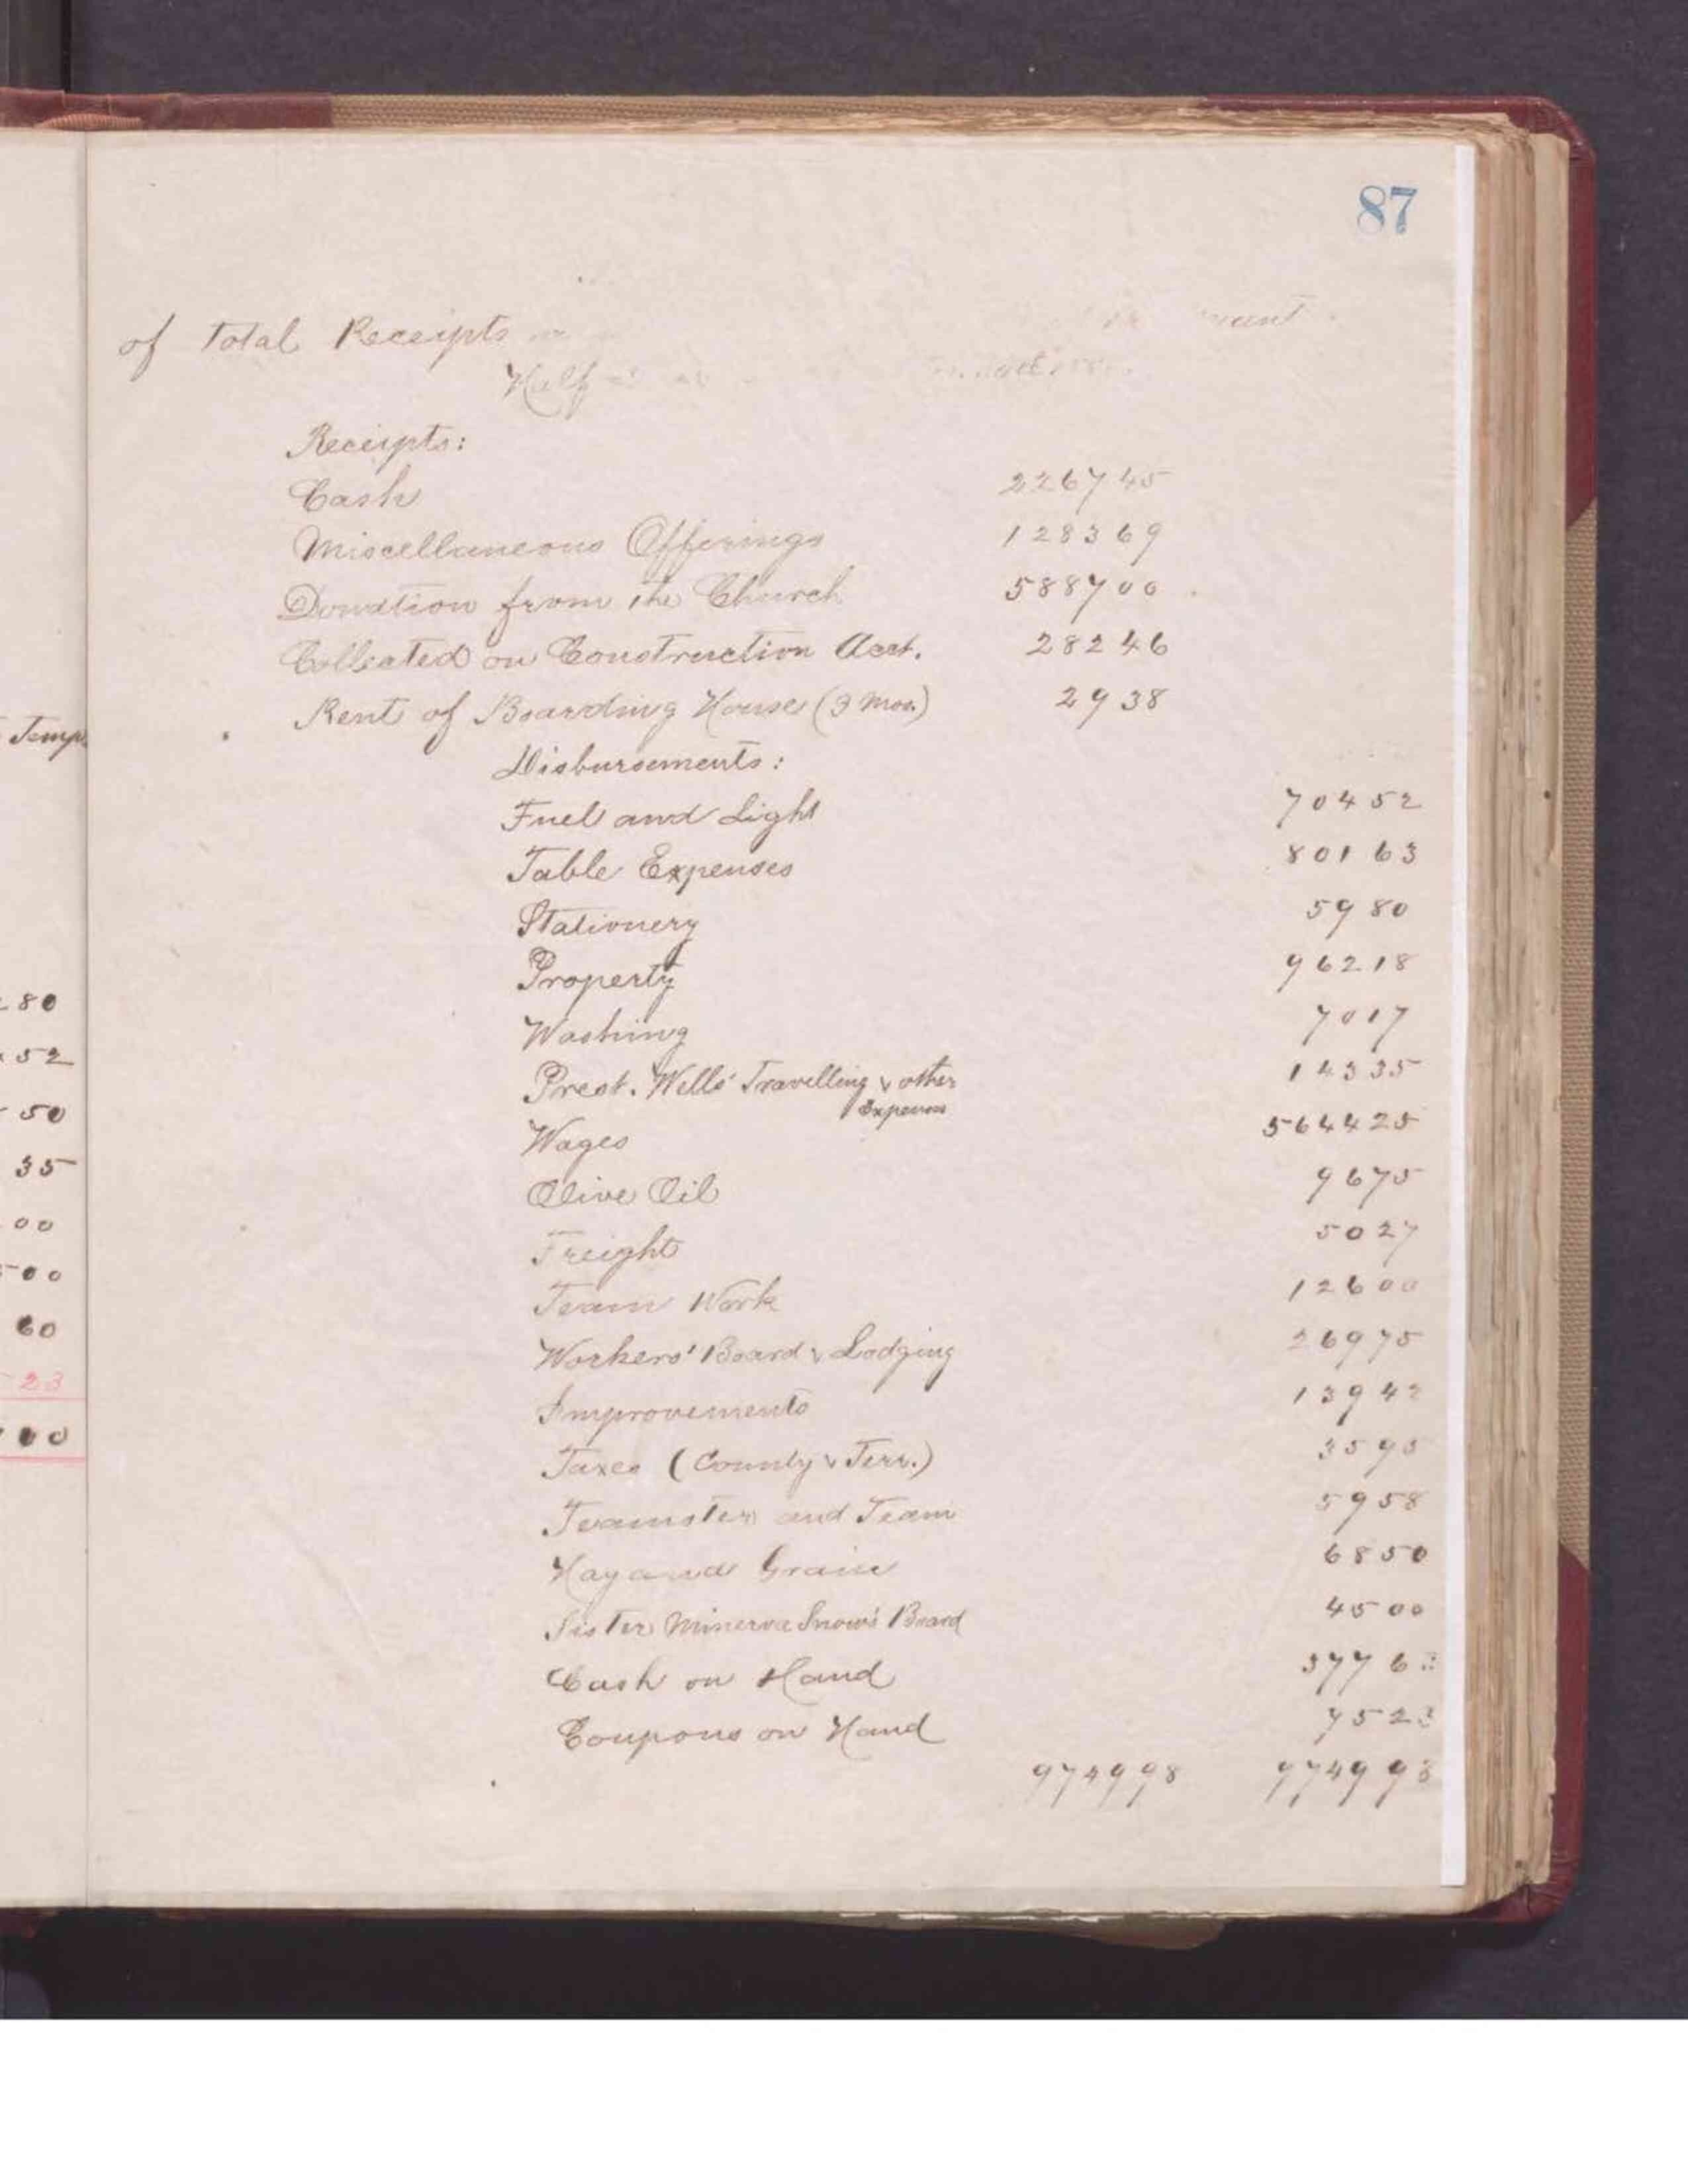 87
of Total Receipts
Half
Receipts:
Cash 2267 45
Miscellaneous Offerings 1283 69
Donation from the Church 5887 00
Collected on Construction Acct. 282 46
Rent of Boarding House (3 Mos.) 29 38
Temp
Disbursements:
Fuel and Light 704 52
Table Expenses 801 63
Stationery 59 80
Property 962 18
80
Washing 70 17
52
Prest. Wells' Travelling & other 143 35
Expenses
50
Wages 5644 25
35
Olive Oil 96 75
00
Freight 50 27
00
Team Work 126 00
60
Workers' Board & Lodging 269 75
23
Improvements 139 42
00
Taxes (County & Terr.) 35 95
Teamster and Team 59 58
Hay and Grain 68 50
Sister Minerva Snow's Board 45 00
Cash on Hand 377 63
Coupons on Hand 95 23
9749 98 9749 98